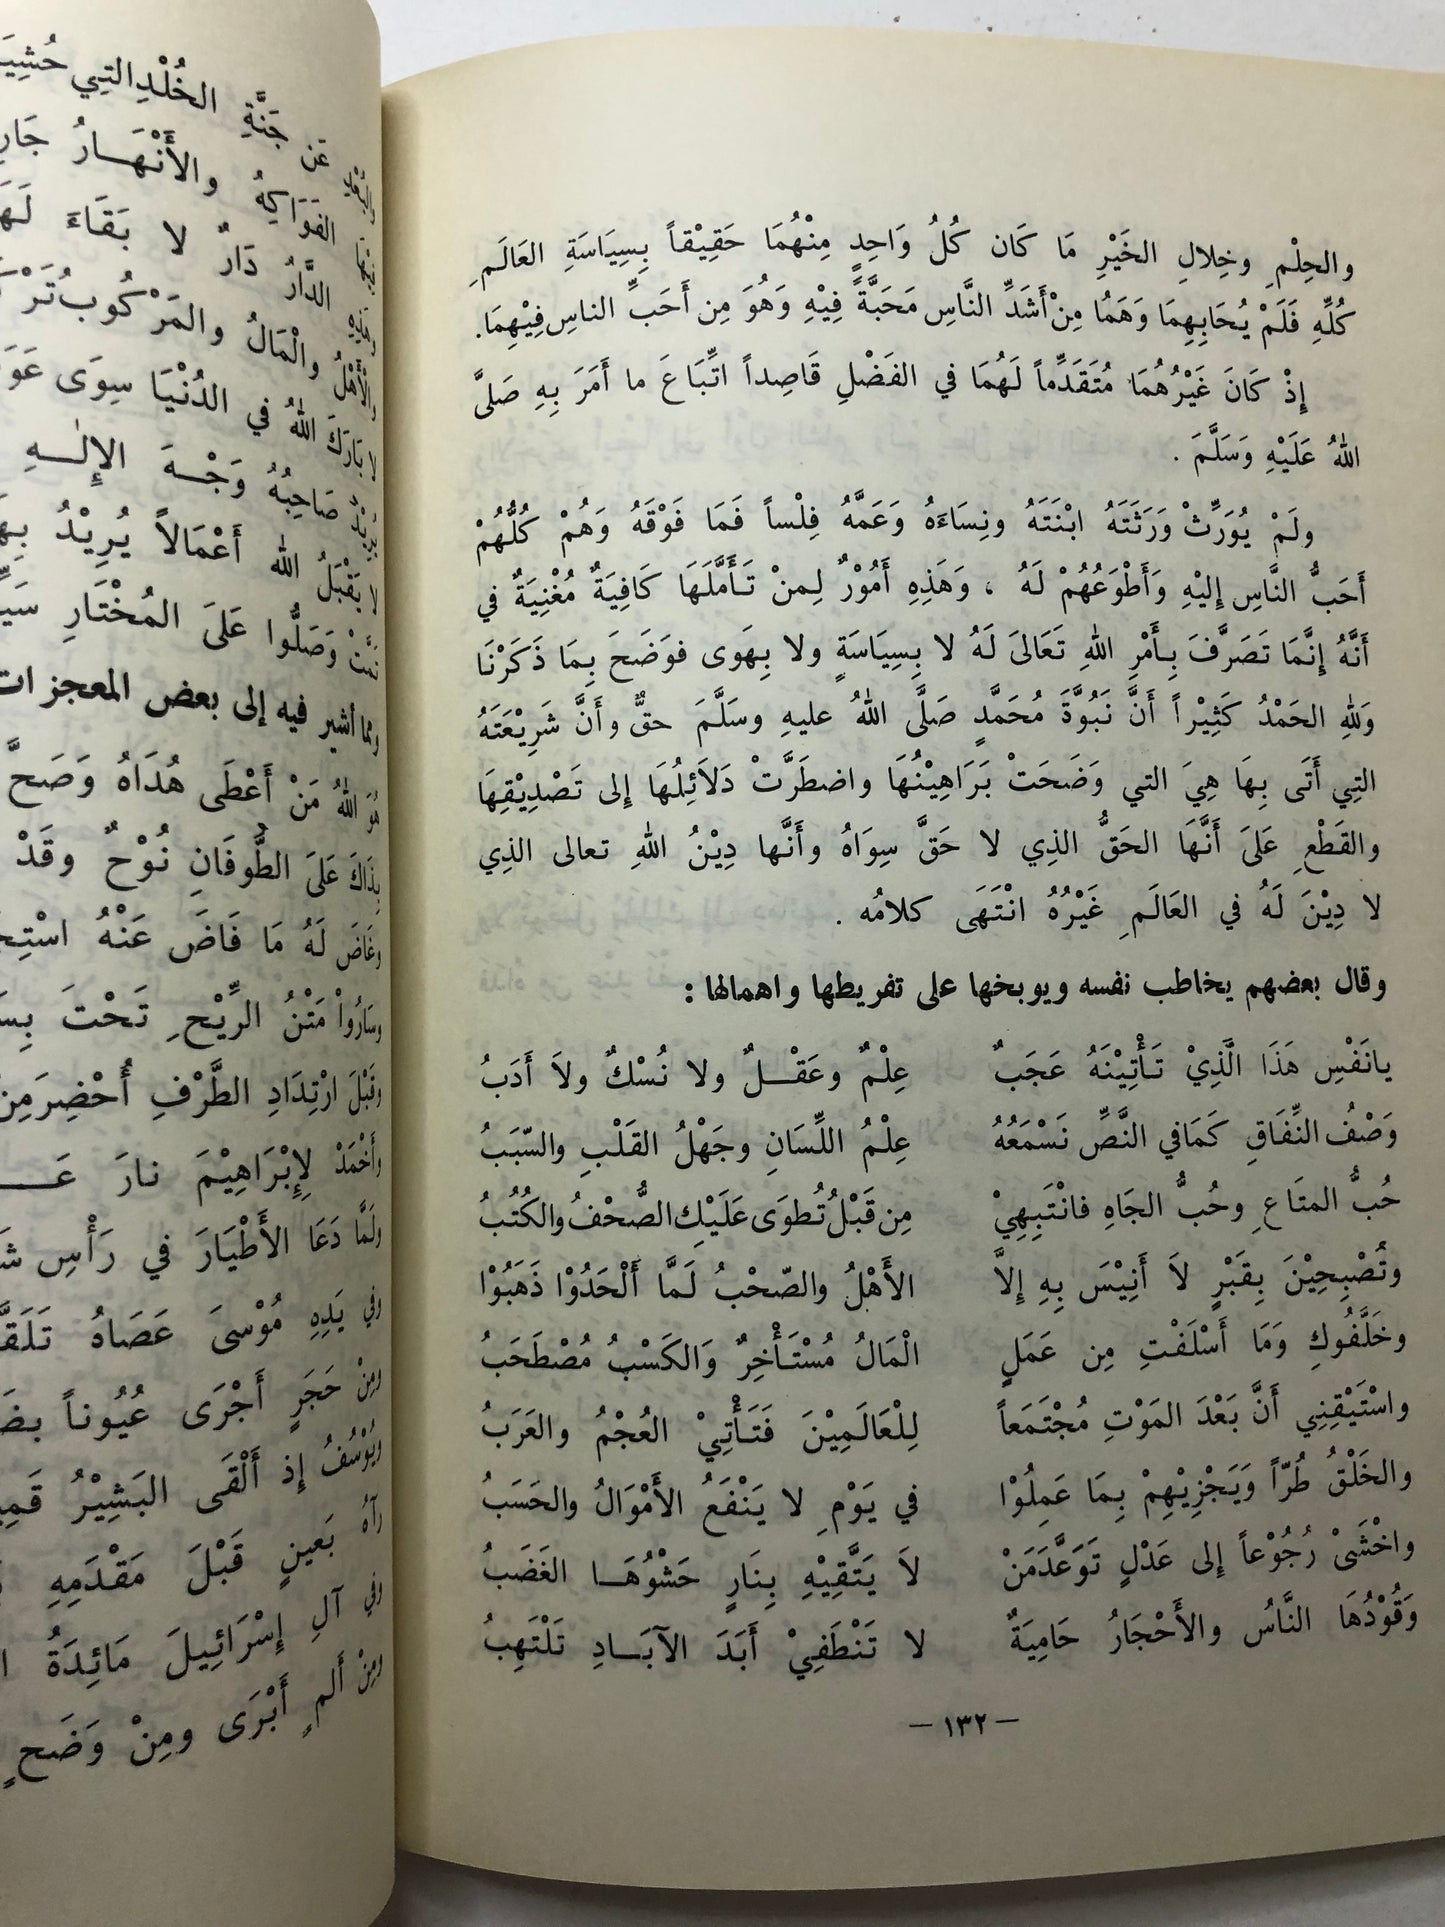 والحِلْمِ وخِلالِ الخَيْرِ مَا كَان كُلُ وَاحِدٍ مِنْهُمَا حَقِيْقاً بِسِيَاسَةِ العَالَمِ
كُلِّهِ فَلَمْ يُحَابِهِمَا وَهَمُا مِنْ أَشَدِّ النَّاسِ مَحَبَّةً فِيْهِ وَهُوَ مِن أَحَبِّ الناسِ فِيْهِمَا.
إِذْ كَانَ غَيْرُهُمَا مُتَقَدِّماً لَهُمَا في الفَضْلِ قَاصِداً اتِّبَاعَ ما أَمَرَ بِهِ صَلَّى
اللهُ عَلَيْهِ وَسَلَّمَ .
ولَمْ يُوَرِّثْ وَرَثَتَهُ ابْنَتَهُ ونِسَاءَهُ وَعَمَّهُ فِلْساً فَمَا فَوْقَهُ وَهُمْ كُلُّهُمْ
أَحَبُّ النَّاسِ إِليْهِ وَأَطْوَعُهُمْ لَهُ ، وَهَذِهِ أَمُوْرٌ لِمنْ تَأَمَّلَهَا كَافِيَةٌ مُغْنِيَةٌ في
أَنَّهُ إِنَّمَا تَصَرَّفَ بِأَمْرِ اللهِ تَعَالىَ لَهُ لا بِسِيَاسَةٍ ولا بِهَوى فوَضَحَ بِمَا ذَكَرْنَا
وَللهِ الحَمْدُ كَثِيْراً أَنَّ نَبُوَّةَ مُحَمَّدٍ صَلَّى اللهُ عليهِ وسَلَّمَ حقٌّ وأَنَّ شَرِيْعَتَهُ
التِي أَتَى بِهَا هِيَ التي وَضَحَتْ بَرَاهِيْنُهَا واضطَرَّتْ دَلاَئِلُهَا إِلى تَصْدِيْقِهَا
والقَطْعِ عَلىَ أَنَّهَا الحَقُّ الذِي لا حَقَّ سِوَاهُ وأَنَّها دِيْنُ اللهِ تعالى الذِي
لا دِيْنَ لَهُ في العَالَمِ غَيْرُهُ انْتَهَى كلامُه .
وقال بعضهم يخاطب نفسه ويوبخها على تفريطها واهمالها :
يانَفْسِ هَذَا الَّذِيْ تَأْتِيْنَهُ عَجَبٌ عِلْمٌ وعَقْلٌ ولا نُسْكٌ ولاَ أَدَبُ
وَصْفُ النِّفَاقِ كَمَا في النَّصِّ نَسْمَعُهُ عِلْمُ اللِّسَانِ وجَهْلُ القَلْبِ والسّبَبُ
حُبُّ المتَاعِ وحُبُّ الجَاهِ فانْتَبِهِيْ مِن قَبْلُ تُطوَى عَلَيْكِ الصُّحْفُ والكُتُبُ
وتُصْبِحِيْنَ بِقَبْرٍ لاَ أَنِيْسَ بِهِ إِلاَّ الأَهْلُ والصّحْبُ لَمَّا أَلْحَدُوْا ذَهَبُوْا
وخَلَّفُوكِ وَمَا أَسْلَفْتِ مِن عَمَلٍ الْمَالُ مُسْتَأْخِرٌ وَالكَسْبُ مُصْطَحَبُ
واسْتَيْقِنِي أَنَّ بَعْدَ المَوْتِ مُجْتَمَعاً لِلْعَالَمِيْنَ فَتَأْتِيْ العُجْمُ والعَرَبُ
والخَلْقُ طُرّاً وَيَجْزِيْهِمْ بِمَا عَمِلُوْا في يَوْمِ لا يَنْفَعُ الأَمْوَالُ والحَسَبُ
واخْشَيْ رُجُوْعاً إِلى عَدْلٍ تَوَعَّدَمَنْ لاَ يَتَّقِيْهِ بِنَارٍ حَشْوُهَا الغَضَبُ
وَقُوْدُهَا النَّاسُ والأَحْجَارُ حَامِيَةٌ لا تَنْطَفِيْ أَبَدَ الآبَادِ تَلْتَهِبُ
— ١٣٢ —
عَن جَنَّةِ الخُلْدِ التِي
الفَوَاكِهُ والأَنْهَارُ
الدَّارُ دَارٌ لا بَقَاءَ
والأَهْلُ والْمَالُ والمَرْكُوبُ
لا بَارَكَ اللهُ في الدُنْيَا سِوَى
يُرِيْدُ صَاحِبُهُ وَجْهَ الإِلٰهِ
لا يَقْبَلُ الله أَعْمَالاً يُرِيْدُ
تَمَّتْ وَصَلُّوا عَلىَ المُخْتَارِ
ومما أشير فيه إلى بعض المعجزات
هُوَ اللهُ مَنْ أَعْطَى هُدَاهُ وَصَحَّ
بِذَاكَ عَلىَ الطُّوفَانِ نُوْحٌ وقَدْ
وغَاضَ لَهُ مَا فَاضَ عَنْهُ
وسَارُواْ مَتْنُ الرِّيْحِ تَحْتَ
وقَبْلَ ارْتِدَادِ الطَّرْفِ أُحْضِرَ مِنْ
وأَخْمَدْ لِإِبْرَاهِيْمَ نارَ
ولَمَّا دَعَا الأَطْيَارَ في رَأْسِ
وفي يَدِهِ مُوْسىَ عَصَاهُ
ومِنْ حَجَرٍ أَجْرَى عُيُوناً
ويُوْسُفُ إِذ أَلْقَى البَشِيْرُ
رَآهُ بَعينٍ قَبْلَ مَقْدَمِهِ
وفي آلِ إِسْرَائِيلَ مَائِدَةُ
ومِنْ أَلمٍ أَبْرَى ومِنْ وَضَحٍ